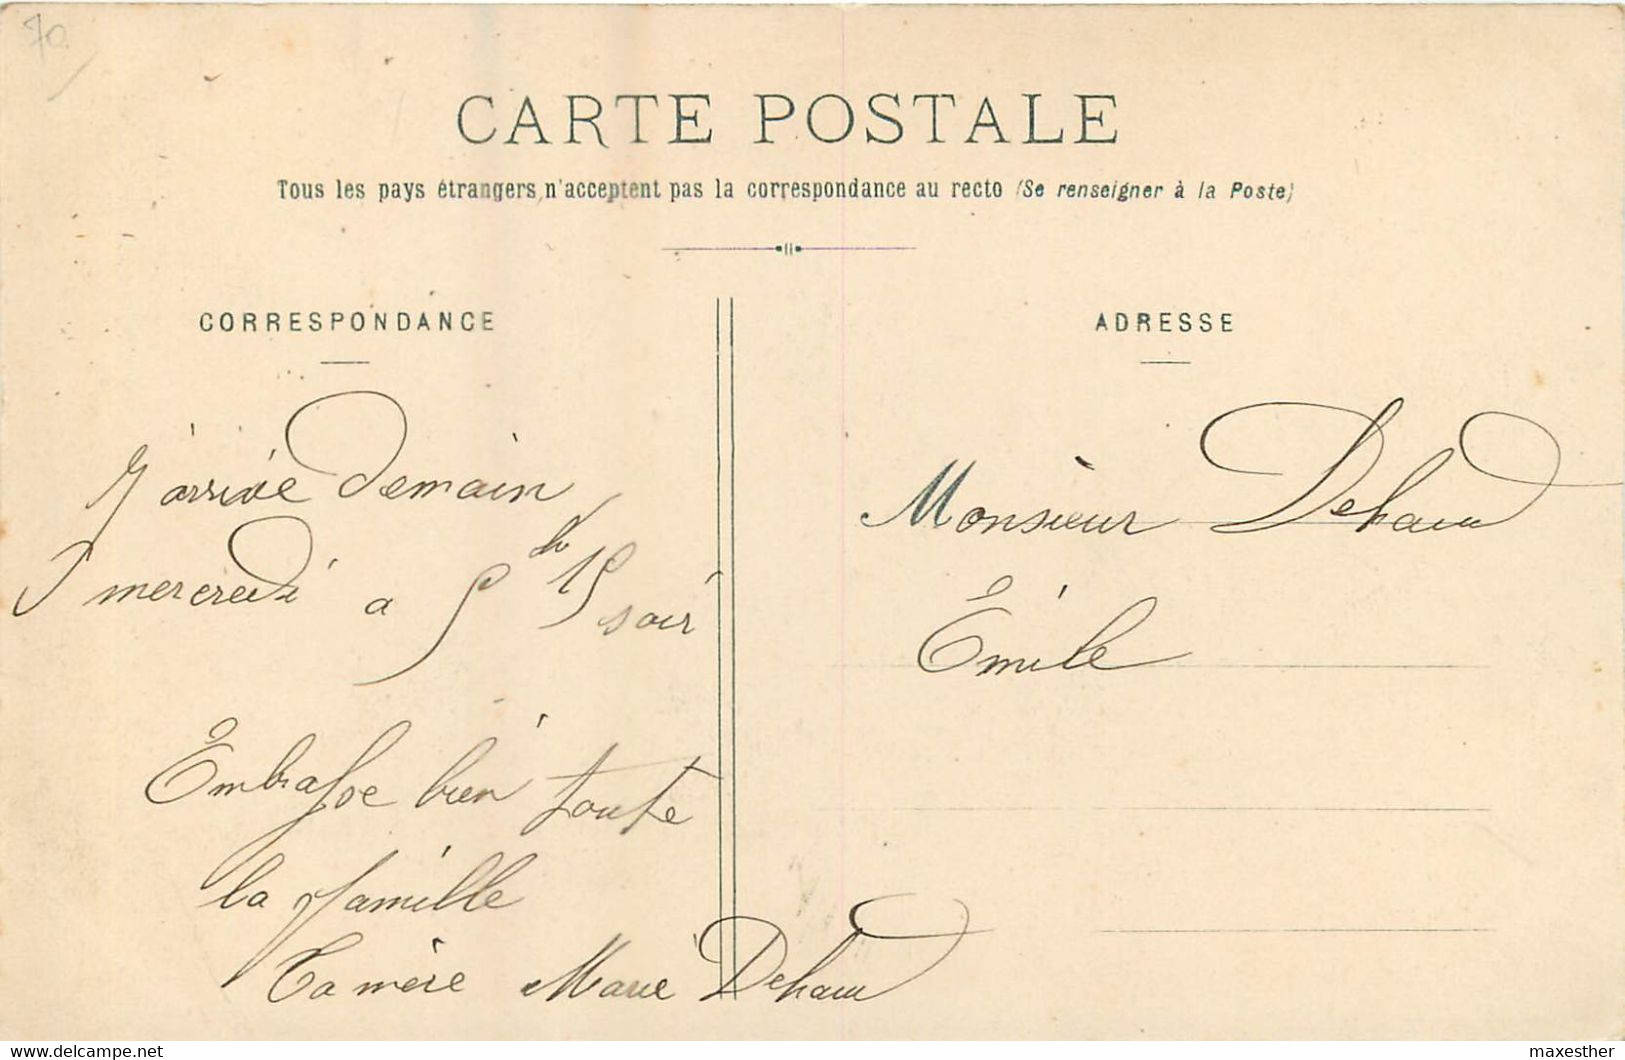 70
CARTE POSTALE
Tous les pays étrangers n'acceptent pas la correspondance au recto (Se renseigner à la Poste)
CORRESPONDANCE
J'arrive Demain
mercredi a 5h 15 soir
Embrasse bien toute
la famille
Ta mère Marie Dehaud
ADRESSE
Monsieur Dehaud
Émile
Delcampe.net
maxesther